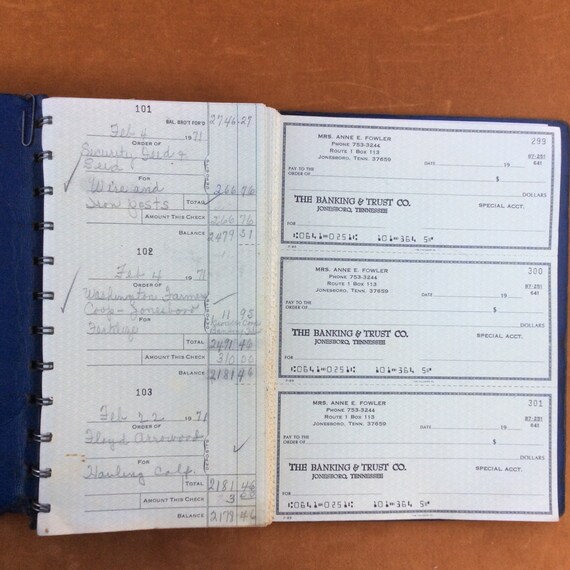 101
BAL. BRO'T FOR'D 2746.27
Feb 4 1971
ORDER OF
Security Seed &
Seed
FOR
Wire and 266 76
Iron Posts TOTAL
AMOUNT THIS CHECK 266 76
BALANCE 2479 51
102
Feb 4 1971
ORDER OF
Washington Farmers
Coop - Jonesboro
FOR 11 95
TOTAL 2491 46
AMOUNT THIS CHECK 310.00
BALANCE 2181 46
103
Feb 22 1971
ORDER OF
Floyd Arrowood
FOR
Hauling Calf.
TOTAL 2181 46
AMOUNT THIS CHECK 3 00
BALANCE 2178 46
299
MRS. ANNE E. FOWLER
PHONE 753-3244
ROUTE 1 BOX 113
JONESBORO, TENN. 37659
87-251
641
DATE 19
PAY TO THE
ORDER OF $
DOLLARS
THE BANKING & TRUST CO.
JONESBORO, TENNESSEE
SPECIAL ACCT.
FOR
0641 0251 101 364 5
300
MRS. ANNE E. FOWLER
PHONE 753-3244
ROUTE 1 BOX 113
JONESBORO, TENN. 37659
87-251
641
DATE 19
PAY TO THE
ORDER OF $
DOLLARS
THE BANKING & TRUST CO.
JONESBORO, TENNESSEE
SPECIAL ACCT.
FOR
0641 0251 101 364 5
301
MRS. ANNE E. FOWLER
PHONE 753-3244
ROUTE 1 BOX 113
JONESBORO, TENN. 37659
87-251
641
DATE 19
PAY TO THE
ORDER OF $
DOLLARS
THE BANKING & TRUST CO.
JONESBORO, TENNESSEE
SPECIAL ACCT.
FOR
0641 0251 101 364 5